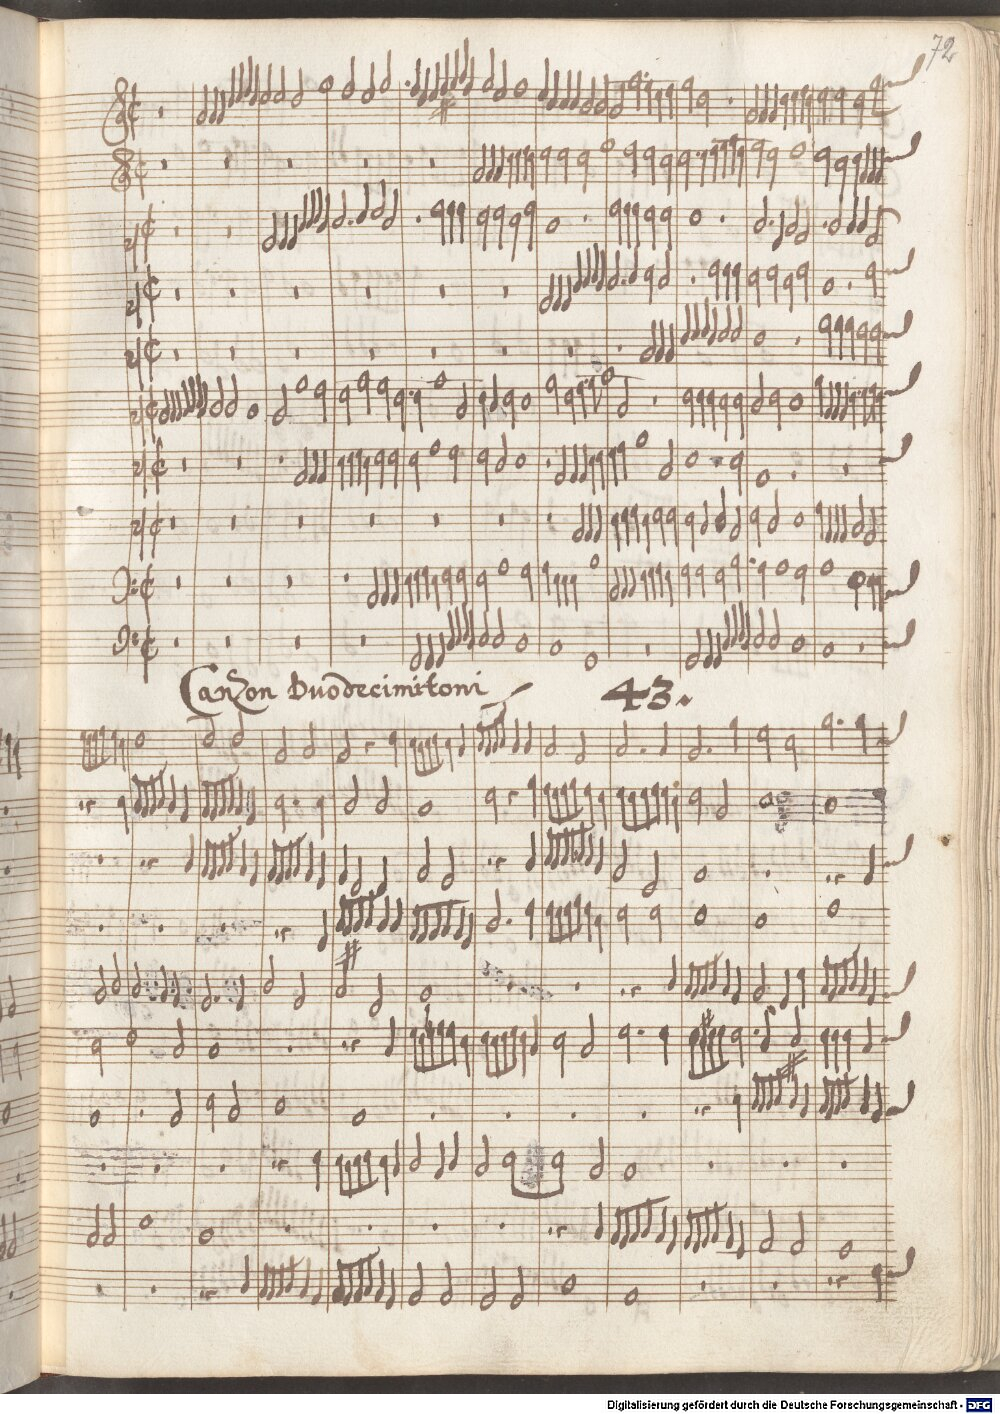 72
Canzon Duodecimitoni 43.
Digitalisierung gefördert durch die Deutsche Forschungsgemeinschaft - DFG